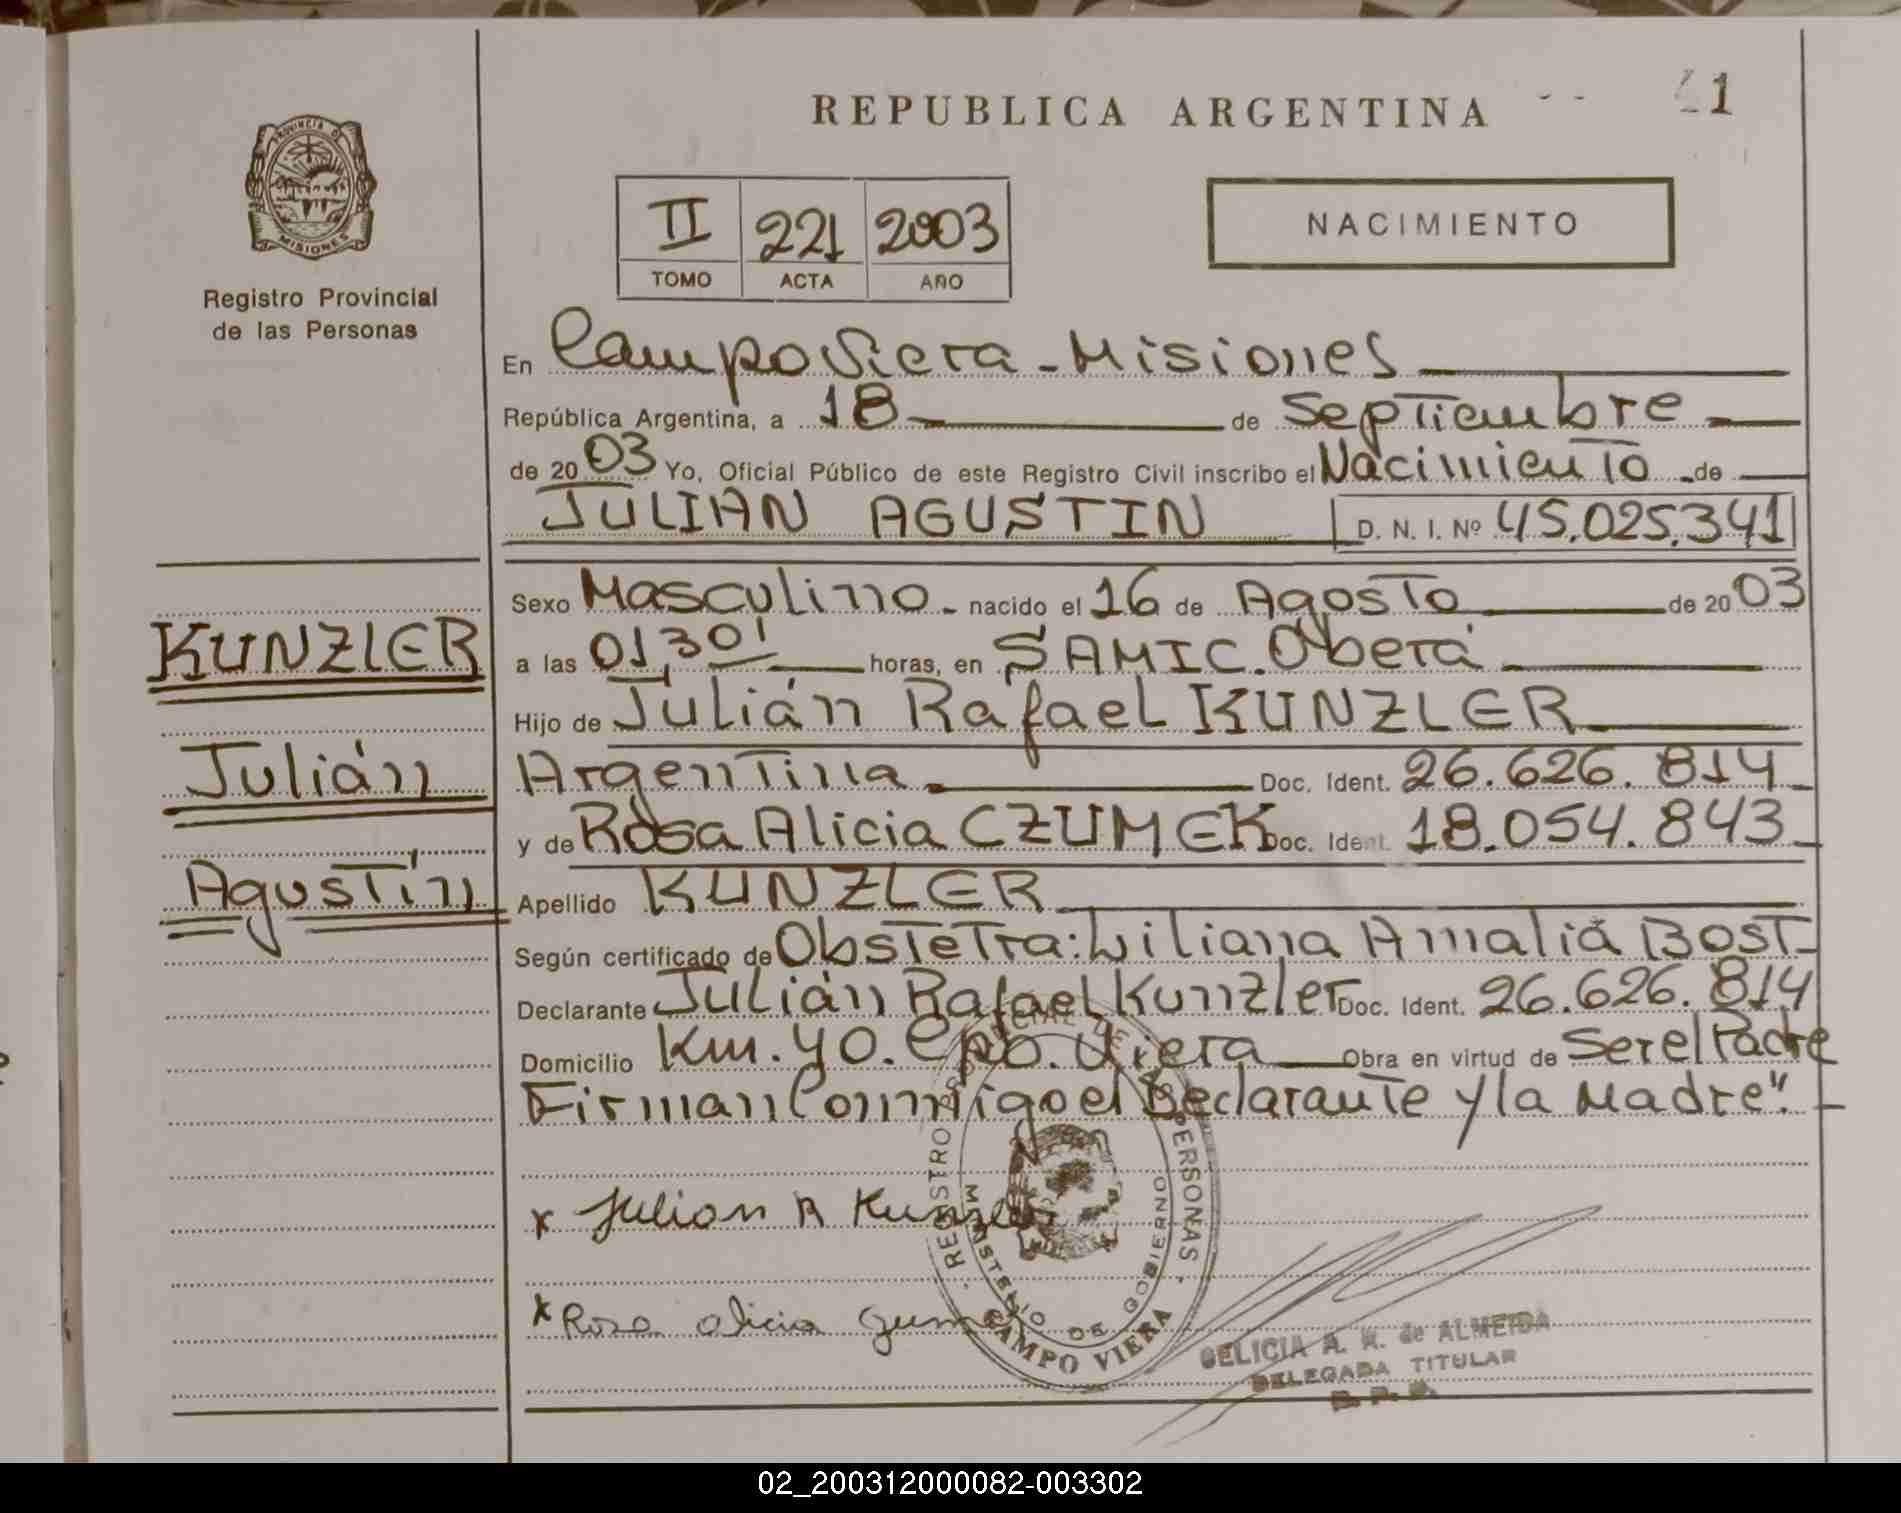 REPUBLICA ARGENTINA
1
PROVINCIA DE
MISIONES
Registro Provincial
de las Personas
II 221 2003
TOMO ACTA AÑO
NACIMIENTO
En Campo Viera - Misiones
República Argentina, a 18 de Septiembre
de 20 03 Yo, Oficial Público de este Registro Civil inscribo el Nacimiento de
JULIAN AGUSTIN D. N. I. Nº 45.025.341
Sexo Masculino - nacido el 16 de Agosto de 20 03
KUNZLER
a las 01,30' horas, en SAMIC. Oberá
Hijo de Julián Rafael KUNZLER
Julián
Argentina Doc. Ident. 26.626.814
y de Rosa Alicia CZUMEK Doc. Ident. 18.054.843
Agustín
Apellido KUNZLER
Según certificado de Obstetra: Liliana Amalia BOST
Declarante Julián Rafael Kunzler Doc. Ident. 26.626.814
Domicilio Km. 40. Cpo. Viera Obra en virtud de Ser el Padre
Firman Conmigo el Declarante y la Madre".
x Julian R Kunzler
x Rosa alicia
REGISTRO PROVINCIAL DE LAS PERSONAS
MINISTERIO DE GOBIERNO
CAMPO VIERA
A. K. de ALMEIDA
DELEGADA TITULAR
02_200312000082-003302